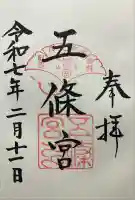 奉拝
五條宮
令和七年二月十一日